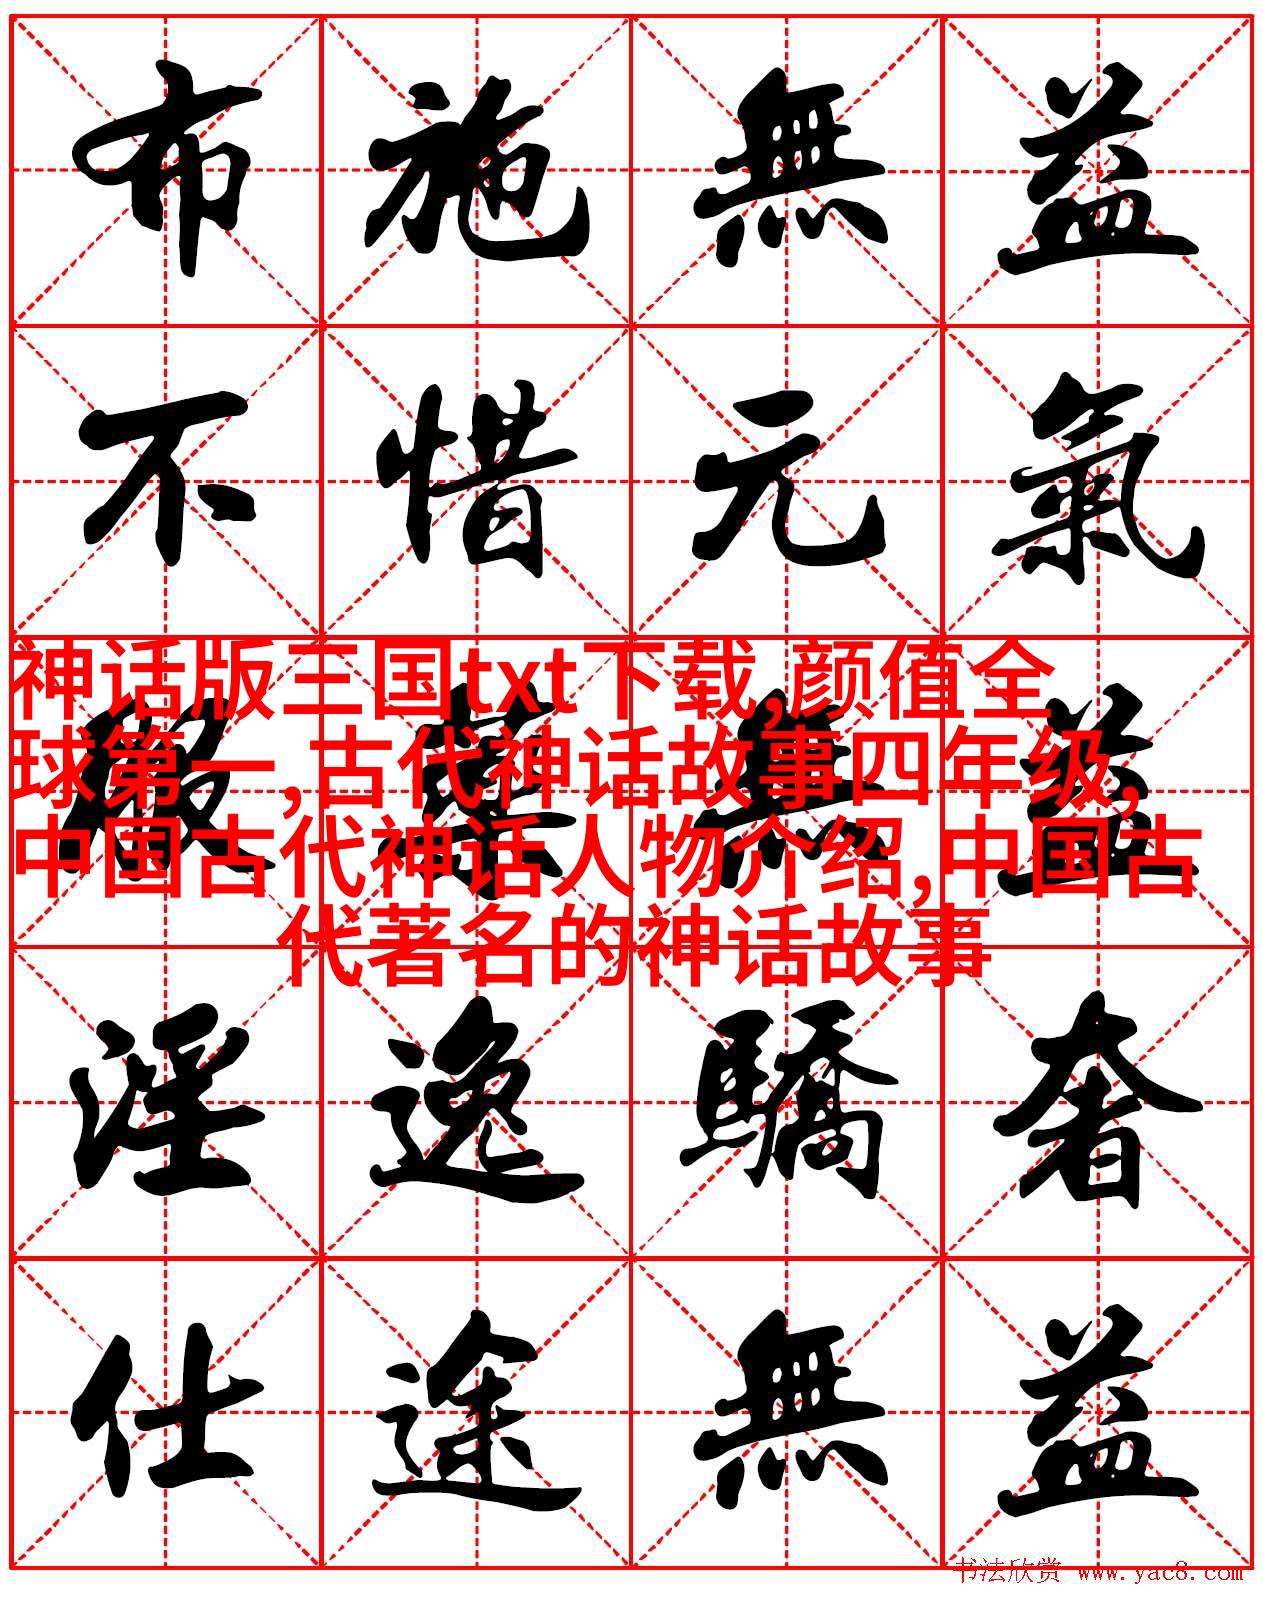 布施無益
不惜元氣
服藥無益
神话版三国txt下载,颜值全
球第一,古代神话故事四年级,
中国古代神话人物介绍,中国古
代著名的神话故事
淫逸驕奢
仕途無益
书法欣赏 www.yac8.com